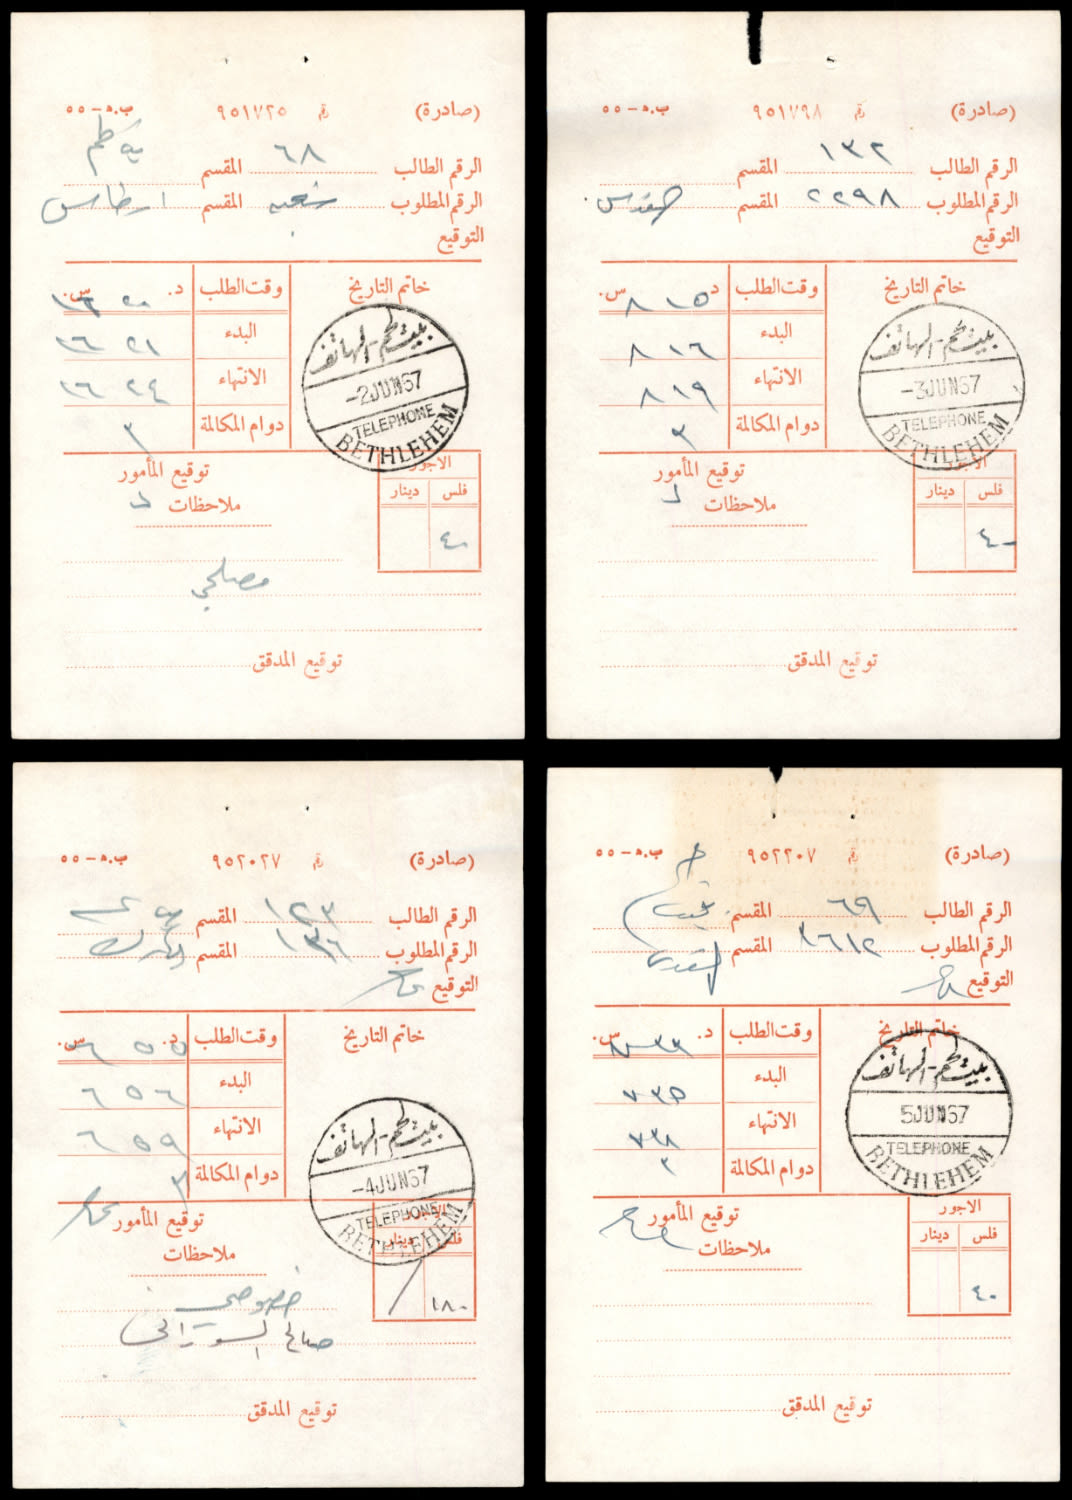 (صادرة) رقم ٩٥١٧٢٥ ب.ه – ٥٥
الرقم الطالب ٦٨ المقسم
الرقم المطلوب المقسم ارطاس
التوقيع
خاتم التاريخ وقت الطلب د. ٢٠ س. ١٦
البدء ٢١ ١٦
الانتهاء ٢٤ ١٦
دوام المكالمة ٣
بيت لحم - الهاتف
-2JUN67
TELEPHONE
BETHLEHEM
توقيع المأمور
ملاحظات
الاجور
فلس دينار
٤٠
مصلحي
توقيع المدقق
(صادرة) رقم ٩٥١٧٩٨ ب.ه – ٥٥
الرقم الطالب ١٣٢ المقسم
الرقم المطلوب ٢٢٩٨ المقسم القدس
التوقيع
خاتم التاريخ وقت الطلب د. ١٥ س. ٨
البدء ١٦ ٨
الانتهاء ١٩ ٨
دوام المكالمة ٣
بيت لحم - الهاتف
-3JUN67
TELEPHONE
BETHLEHEM
توقيع المأمور
ملاحظات
الاجور
فلس دينار
٤٠
توقيع المدقق
(صادرة) رقم ٩٥٢٠٢٧ ب.ه – ٥٥
الرقم الطالب ١٢٣ المقسم
الرقم المطلوب ١٣٦ المقسم
التوقيع
خاتم التاريخ وقت الطلب د. ٥٥ س. ٦
البدء ٥٦ ٦
الانتهاء ٥٩ ٦
دوام المكالمة ٣
بيت لحم - الهاتف
-4JUN67
TELEPHONE
BETHLEHEM
توقيع المأمور
ملاحظات
الاجور
فلس دينار
١٨٠
خصوصي
صالح
توقيع المدقق
(صادرة) رقم ٩٥٢٢٠٧ ب.ه – ٥٥
الرقم الطالب ٦٩ المقسم
الرقم المطلوب المقسم القدس
التوقيع
خاتم التاريخ وقت الطلب د. ٣٣ س. ٧
البدء ٧٣٥
الانتهاء ٧٣٨
دوام المكالمة ٣
بيت لحم - الهاتف
5JUN67
TELEPHONE
BETHLEHEM
توقيع المأمور
ملاحظات
الاجور
فلس دينار
٤٠
توقيع المدقق